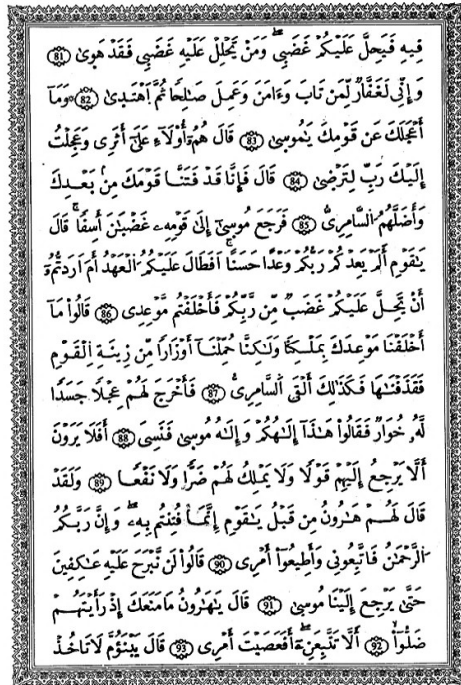 فِيهِ فَيَحِلَّ عَلَيْكُمْ غَضَبِى وَمَنْ يَّحْلِلْ عَلَيْهِ غَضَبِى فَقَدْ هَوٜىٰ 81
وَإِنِّى لَغَفَّارٌ لِّمَن تَابَ وَءَامَنَ وَعَمِلَ صَـٰلِحًا ثُمَّ اَهْتَدٜىٰ 82 وَمَآ
أَعْجَلَكَ عَن قَوْمِكَ يَـٰمُوسٜىٰ 83 قَالَ هُمُۥٓ أُوْلَآءِ عَلَىٰٓ أَثَرِى وَعَجِلْتُ
إِلَيْكَ رَبِّ لِتَرْضٜىٰ 84 قَالَ فَإِنَّا قَدْ فَتَنَّا قَوْمَكَ مِنۢ بَعْدِكَ
وَأَضَلَّهُمُ السَّامِرِىُّ 85 فَرَجَعَ مُوسٜىٰٓ إِلَىٰ قَوْمِهِۦ غَضْبَـٰنَ أَسِفًا قَالَ
يَـٰقَوْمِ أَلَمْ يَعِدْكُمْ رَبُّكُمْ وَعْدًا حَسَنًا اَفَطَالَ عَلَيْكُمُ الْعَهْدُ أَمْ أَرَدتُّمُۥٓ
أَنْ يَّحِلَّ عَلَيْكُمْ غَضَبٌ مِّن رَّبِّكُمْ فَأَخْلَفْتُم مَّوْعِدِى 86 قَالُواْ مَآ
أَخْلَفْنَا مَوْعِدَكَ بِمَلْكِنَا وَلَـٰكِنَّا حُمِّلْنَآ أَوْزَارًا مِّن زِينَةِ اِلْقَوْمِ
فَقَذَفْنَـٰهَا فَكَذَٰلِكَ أَلْقَى اَلسَّامِرِىُّ 87 فَأَخْرَجَ لَهُمْ عِجْلًا جَسَدًا
لَّهُۥ خُوَارٌ فَقَالُواْ هَـٰذَآ إِلَـٰهُكُمْ وَإِلَـٰهُ مُوسٜىٰ فَنَسِىَ 88 أَفَلَا يَرَوْنَ
أَلَّا يَرْجِعُ إِلَيْهِمْ قَوْلًا وَلَا يَمْلِكُ لَهُمْ ضَرًّا وَلَا نَفْعًا 89 وَلَقَدْ
قَالَ لَهُمْ هَـٰرُونُ مِن قَبْلُ يَـٰقَوْمِ إِنَّمَا فُتِنتُم بِهِۦ وَإِنَّ رَبَّكُمُ
اَلرَّحْمَـٰنُ فَاتَّبِعُونِى وَأَطِيعُوٓاْ أَمْرِى 90 قَالُواْ لَن نَّبْرَحَ عَلَيْهِ عَـٰكِفِينَ
حَتَّىٰ يَرْجِعَ إِلَيْنَا مُوسٜىٰ 91 قَالَ يَـٰهَـٰرُونُ مَا مَنَعَكَ إِذْ رَأَيْتَهُمْ
ضَلُّوٓاْ 92 أَلَّا تَتَّبِعَنِۦٓ أَفَعَصَيْتَ أَمْرِى 93 قَالَ يَبْنَؤُمَّ لَا تَاخُذْ